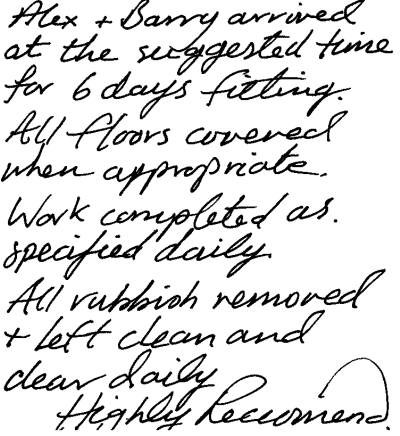 Alex + Barry arrived
at the suggested time
for 6 days fitting.
All floors covered
when appropriate.
Work completed as.
specified daily.
All rubbish removed
+ left clean and
clear daily
Highly Reccomend.